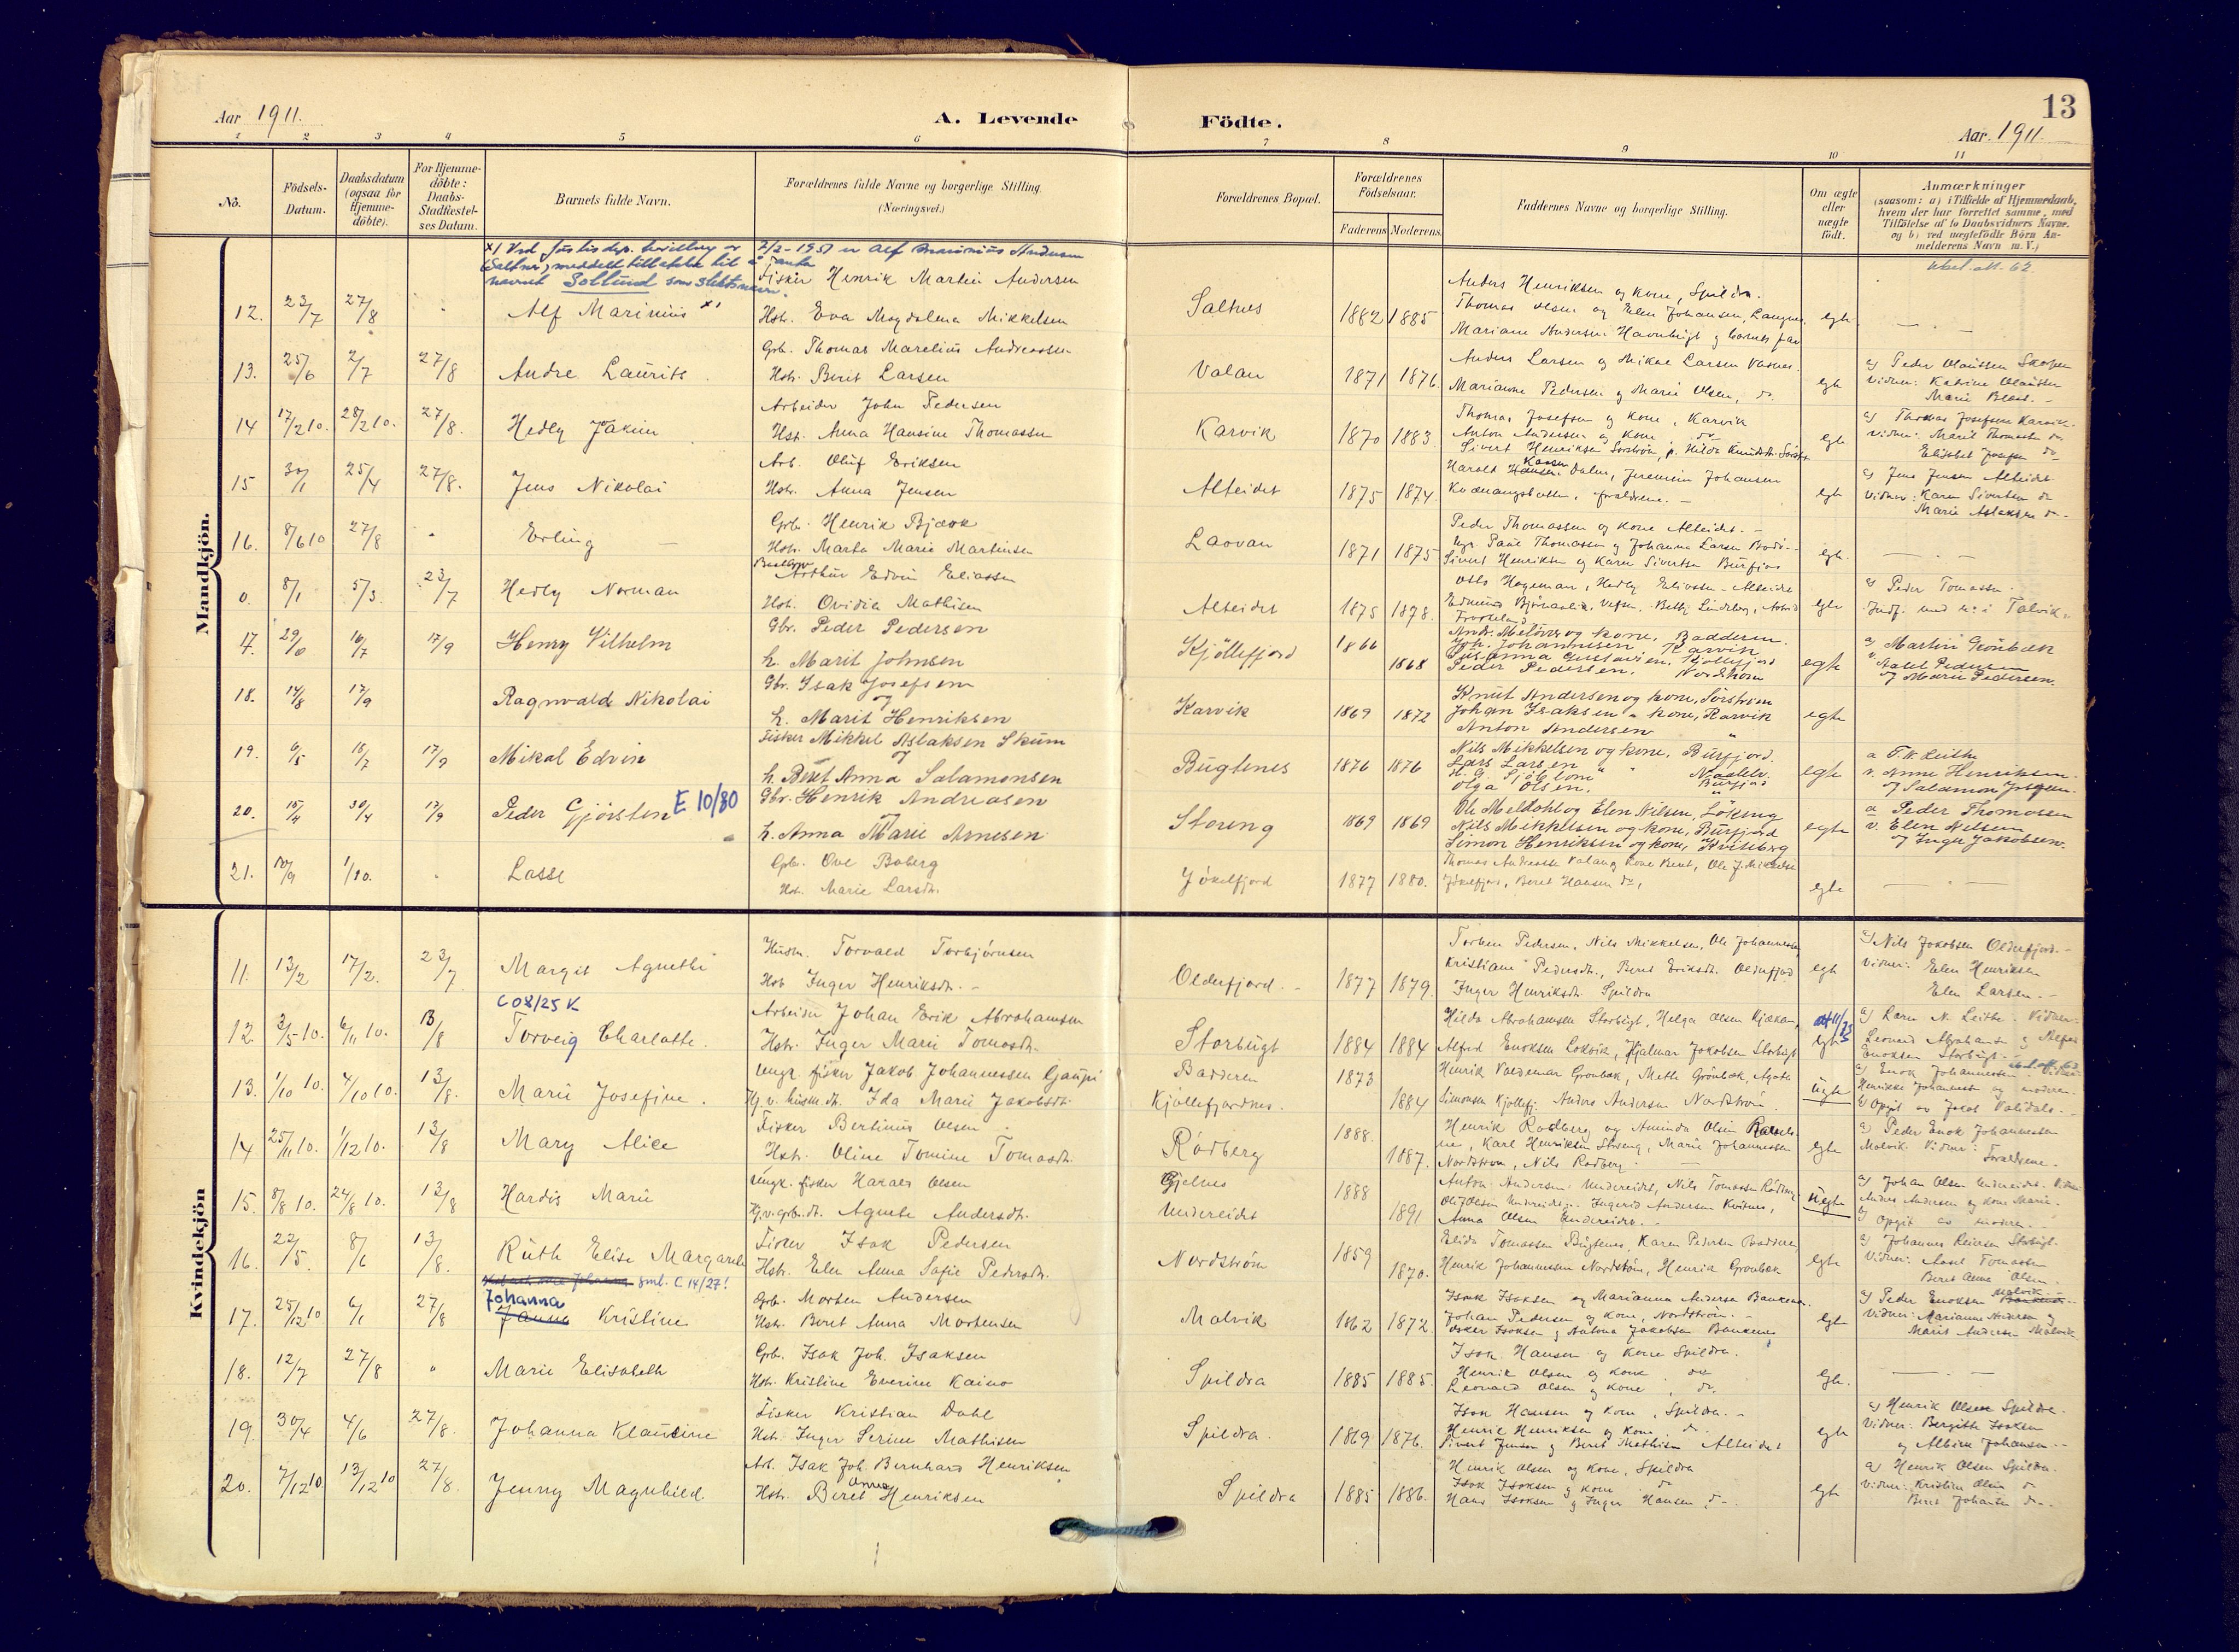 13
Aar 1911.
A. Levende Födte.
Aar 1911.
1 2 3 4 5 6 7 8 9 10 11
No.
Födsels-Datum.
Daabsdatum (ogsaa for Hjemme-döbte).
For Hjemme-döbte: Daabs-Stadfæstel-ses Datum.
Barnets fulde Navn.
Forældrenes fulde Navne og borgerlige Stilling. (Næringsvei.)
Forældrenes Bopæl.
Forældrenes Födselsaar.
Faderens Moderens
Faddernes Navne og borgerlige Stilling.
Om ægte eller uægte födt.
Anmærkninger
(saasom: a) i Tilfælde af Hjemmedaab, hvem der har forrettet samme, med Tilföielse af to Daabsvidners Navne. og b) ved uægtefödte Börn An-melderens Navn m. V.)
Mandkjön.
x) Ved Justisdep. bevilling av 2/2-1951 er Alf Marinius Andersen
(Saltnes) meddelt tillatelse til å anta
navnet Sollund som slektsnavn.
Fisker Henrik Martin Andersen
Anders Henriksen og kone, Spildra.
12. 23/7 27/8 " Alf Marinius x) Hstr. Eva Magdalena Mikkelsen Saltnes 1882 1885 Thomas Olsen og Elen Johansen, egte — " —
Mariane Andersen Havnbugt og barnets far
Grb. Thomas Marelius Andreassen
13. 25/6 2/7 27/8 Andre Laurits Hstr. Berit Larsen Valan 1871 1876. Anders Larsen og Mikal Larsen egte a) Peder Olaussen
Marianne Pedersen og Marie Olsen, do. Vidner: Katrine Olaussen
Arbeider John Pedersen
14 17/2 10. 28/2 10. 27/8. Hedly Jakim Hst. Anna Hansine Thomassen Karvik 1870 1883. Thomas Josefsen og kone, Karvik egte a) Thomas Josefsen Karvik.
Anton Andersen og kone, do Vidner: Marit Thomassen do
Elisabet Josefsen do
Arb. Oluf Eriksen
15 30/1 25/4 27/8. Jens Nikolai Hstr. Anna Jensen Alteidet 1875 1874. Harald Hansen Dalen, Johansen egte a) Jens Jensen Alteidet
Kvænangsbotten, forældrene. — Vidner: Karen Sivertsen do
Marie Aslaksen do.
Grb. Henrik Bjævk
16. 8/6 10 27/8 " Erling — Hstr. Marta Marie Martinsen Laovan 1871 1875 Peder Thomassen og kone Alteidet. — egte. — " —
Paul Thomassen og Johanna Larsen
Sivert Henriksen og Karen Sivertsen Burfjord
Arthur Edvin Eliassen
0. 8/1 5/3 23/7 Hedly Norman Hst. Ovidia Mathisen Alteidet 1875 1878. Oslo Hageman, Hedly Eliassen. Alteidet egte a) Peder Tomassen.
Indf. med no i Talvik.
Gbr. Peder Pedersen
17. 29/6 16/7 17/9 Henry Vilhelm h. Marit Johnsen Kjöllefjord 1866 1868 og kone, Badderen egte a. Martin Grönbæk
Joh. Johannesen Karvik
Susanna Gustavsen, Kjöllefjord
Peder Pedersen. Nordström v. Aasel Pedersen og Marie Pedersen.
Gbr. Isak Josefsen
18. 14/8 17/9 Ragnvald Nikolai h. Marit Henriksen Karvik 1869 1872 Knut Andersen og kone, Sörstrøm egte
Johan Isaksen " kone, Karvik
Anton Andersen "
Fisker Mikkel Aslaksen Skum
19. 6/5 18/7 17/9 Mikal Edvin h. Beret Anna Salamonsen Bugtenes 1876 1876 Nils Mikkelsen og kone, Burfjord. egte a F. N. Leithe
Lars Larsen " " v. Anne Henriksen
Olga Olsen. Burfjord og Salamon Josefsen.
Gbr. Henrik Andreasen
20. 15/4 30/4 17/9 Peder Gjörsten E 10/80 h. Anna Marie Arnesen Storeng 1869 1869 Ole Meldahl og Elen Nilsen, Lökeng egte a Peder Thomassen
Nils Mikkelsen og kone, Burfjord v. Elen Nilsen
Simon Henriksen og kone, Kviteberg og Inger Jakobsen.
Grb. Ove Boberg
21. 10/9 1/10. " Lasse Hst. Marie Larsdtr. Jökelfjord 1877 1880. Jökelfjord, Beret Hansen do, egte — " —
Kvindekjön
Husm. Torvald Torbjørnsen
11. 13/2 17/2. 23/7 Margit Agnethe Hstr Inger Henriksdtr. — Olderfjord. — 1877 1879. Torben Pedersen, Nils Mikkelsen, Ole Johannessen egte a) Nils Jakobsen Olderfjord. —
Kristiane Pedersdt., Beret Eriksdt. Olderfjord Vidner: Elen Henriksen
Inger Henriksdt. Spildra Elen Larsen. —
C 08/25 K
Arbeider Johan Erik Abrahamsen
12 3/5-10. 6/11 10. 13/8 Torveig Charlotte. Hstr. Inger Marie Tomasdtr. Storbugt 1884 1884 Hilda Abrahamsen Storbugt, Helga Olsen Kjækan, egte a) Karen N. Leithe. Vidner:
Alfred Enoksen Lokvik, Hjalmar Jakobsen Storbugt Leonard Abrahamsen og Alfred
Enoksen Storbugt. —
Ungk. fisker Jakob Johannessen Gaupi Badderen 1873
13. 1/10 10. 4/10 10. 13/8. Marie Josefine. Pg. v. husm. dt. Ida Marie Jakobsdt. Kjöllefjordnes. 1884 Henrik Valdemar Grønbæk, Meth Grönbæk, Agoth uegte a) Enok Johannessen. Vidner
Simonsen Kjøllefj. Anders Andersen Nordstrøm. Henrikke Johannessen og moderen.
Fisker Bertinius Olsen
14 25/11 10. 1/12 10. 13/8 Mary Alice Hstr. Oline Tomine Tomasdt. Rödberg 1888. 1887. Henrik Rodberg og Aminda Olsen egte a) Peder Enok Johannessen
Karl Henriksen Storeng, Marie Johannessen Malvik. Vidner:
Nordstrøm, Nils Rodberg. — Forældrene. —
Ungk. fisker Harald Olsen Gjelnes 1888
15. 8/8 10. 24/8 10. 13/8 Hardis Marie Pg. v. grb. dt. Agnete Andersdt. Undereidet 1891 Anton Andersen Undereidet, Nils Tomassen uegte a) Johan Olsen Undereidet. Vidner
Ingerid Andersen Kvitnes, Anders Andersen og kone Marie. —
Anna Olsen Undereidet. — b) Opgit av moderen. —
Fisker Isak Pedersen
16. 22/5. 8/6 13/8. Ruth Elise Margarete Hstr. Elen Anna Sofie Pedersdt. Nordström 1859 1870. Elida Tomassen Bugtenes, Karen Pedersen Badderen, egte a) Johannes Reiersen Storbugt.
Henrik Johannessen Nordstrøm, Henrik Grønbæk Vidner: Aasel Tomassen
Beret Anna Olsen.
sml. C 14/27!
Grb. Morten Andersen
17. 25/12 10 6/1 27/8 Johanna Kristine Hstr. Beret Anna Mortensen Malvik 1862 1872. Isak Isaksen og Marianna Andersen egte a) Peder Enoksen Malvik
Johan Pedersen og kone, Nordstrøm. — Vidner: Marianne Andersen og
Oskar Isaksen og Antona Jakobsen Marit Andersen Malvik
Grb. Isak Joh. Isaksen
18. 12/7 27/8 " Marie Elisabeth Hstr. Kristine Everine Kaino Spildra 1885 1885. Isak Hansen og kone Spildra. egte. — " —
Henrik Olsen og kone do
Leonard Olsen og kone, do.
Fisker Kristian Dahl
19. 30/4 4/6 27/8. Johanna Klausine Hstr. Inger Serine Mathisen Spildra. 1869 1876. Isak Hansen og kone, Spildra. — egte a) Henrik Olsen Spildra.
Henrik Henriksen og kone do. Vidner: Bergitte Isaksen
Sivert Jensen og Beret Mathisen Alteidet og Albine Johansen. —
Arb. Isak Joh. Bernhard Henriksen
20. 7/12 10 13/12 10 27/8. Jenny Magnhild. Hstr. Beret Anna Henriksen Spildra 1885 1886. Henrik Olsen og kone, Spildra egte a) Henrik Olsen Spildra.
Isak Isaksen og kone do Vidner: Kristine Olsen do
Hans Isaksen og Inger Hansen, do. Beret Johansen do. —